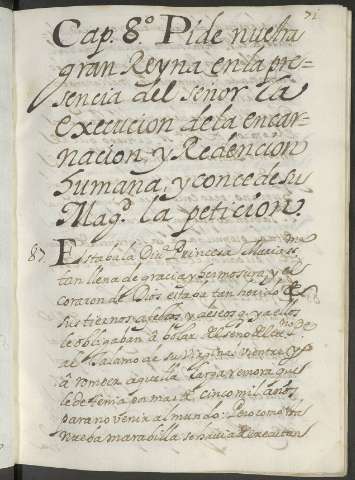 71
Cap. 8.º Pide nuestra
gran Reyna en la pre-
sencia del señor la
execucion de la encar-
nacion, y Redencion
humana, y concede su
Mag.d la peticion.
87 Estaba la Diu.ª Princesa Maria ss.ma
tan llena de gracia y hermosura, y el
corazon de Dios estaba tan herido de
sus tiernos afectos, y deseos que ya ellos
le obligaban à bolar del seno del
al talamo de su Virginal vientre y
à romper aquella larga remora que
le detenia pa mas de cinco mil años
para no venir al mundo. Pero como
nueba marabilla se havia de executar